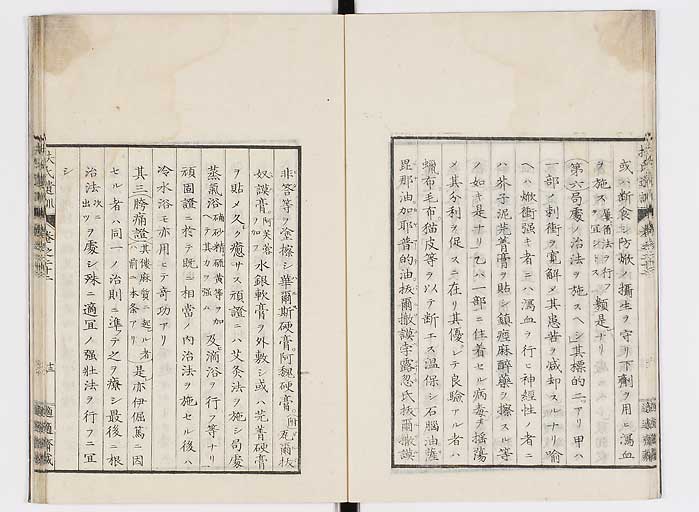 或ハ断食シ防焮ノ攝生ヲ守リ下劑ヲ用ヒ瀉血
ヲ施スヲ宜シトス類是ナリ
第六局處ノ治法ヲ施スヘシ其標的二アリ甲ハ
一部ノ刺衝ヲ寛解メ其患苦ヲ減却スルナリ喻
ヘハ焮衝強キ者ニハ瀉血ヲ行ヒ神經性ノ者ニ
ハ芥子泥芫菁膏ヲ貼シ鎮痙麻醉藥ヲ擦スル等
ノ如キ是ナリ乙ハ一部ニ住着セル病毒ヲ揺蕩
メ其分利ヲ促スニ在リ其優レテ良驗アル者ハ
蠟布毛布猫皮等ヲ以テ断エス温保シ石腦油薩
毘那油加耶普的油拔爾撒謨孛露忽氏拔爾撒謨
扶氏遺訓 卷之十二
適適齋藏
非答等ヲ塗擦シ華爾斯硬膏阿魏硬膏
奴謨膏水銀軟膏ヲ外敷シ或ハ芫菁硬膏
ヲ貼メ久ク癒サス頑證ニハ艾灸法ヲ施シ局處
蒸氣浴硇砂精硫黄等ヲ加ヘテ其力ヲ強ム及滴浴ヲ行フ等ナリ
頑固證ニ於テ既ニ相當ノ内治法ヲ施セル後ハ
冷水浴モ亦用ヒテ奇功アリ
其三胯痛證其僂麻質ニ起ル者ハ前ノ本条ニアリ是亦伊倔篤ニ因
セル者ハ同一ノ治則ニ準テ之ヲ療シ最後ニ根
治法次ニ出ツヲ處シ殊ニ適宜ノ強壮法ヲ行フニ宜
シ
扶氏遺訓 卷之十二
十三
適適齋藏